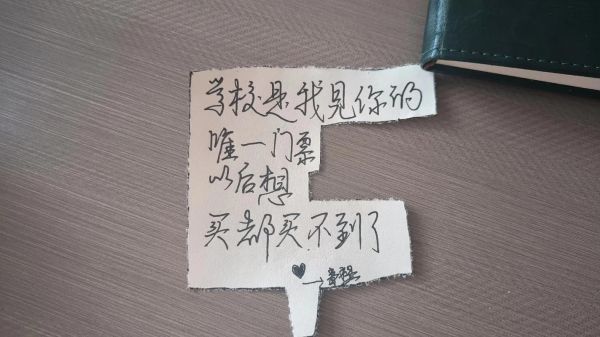 学校是我见你的
唯一门票
以后想
买都买不到了
♥→